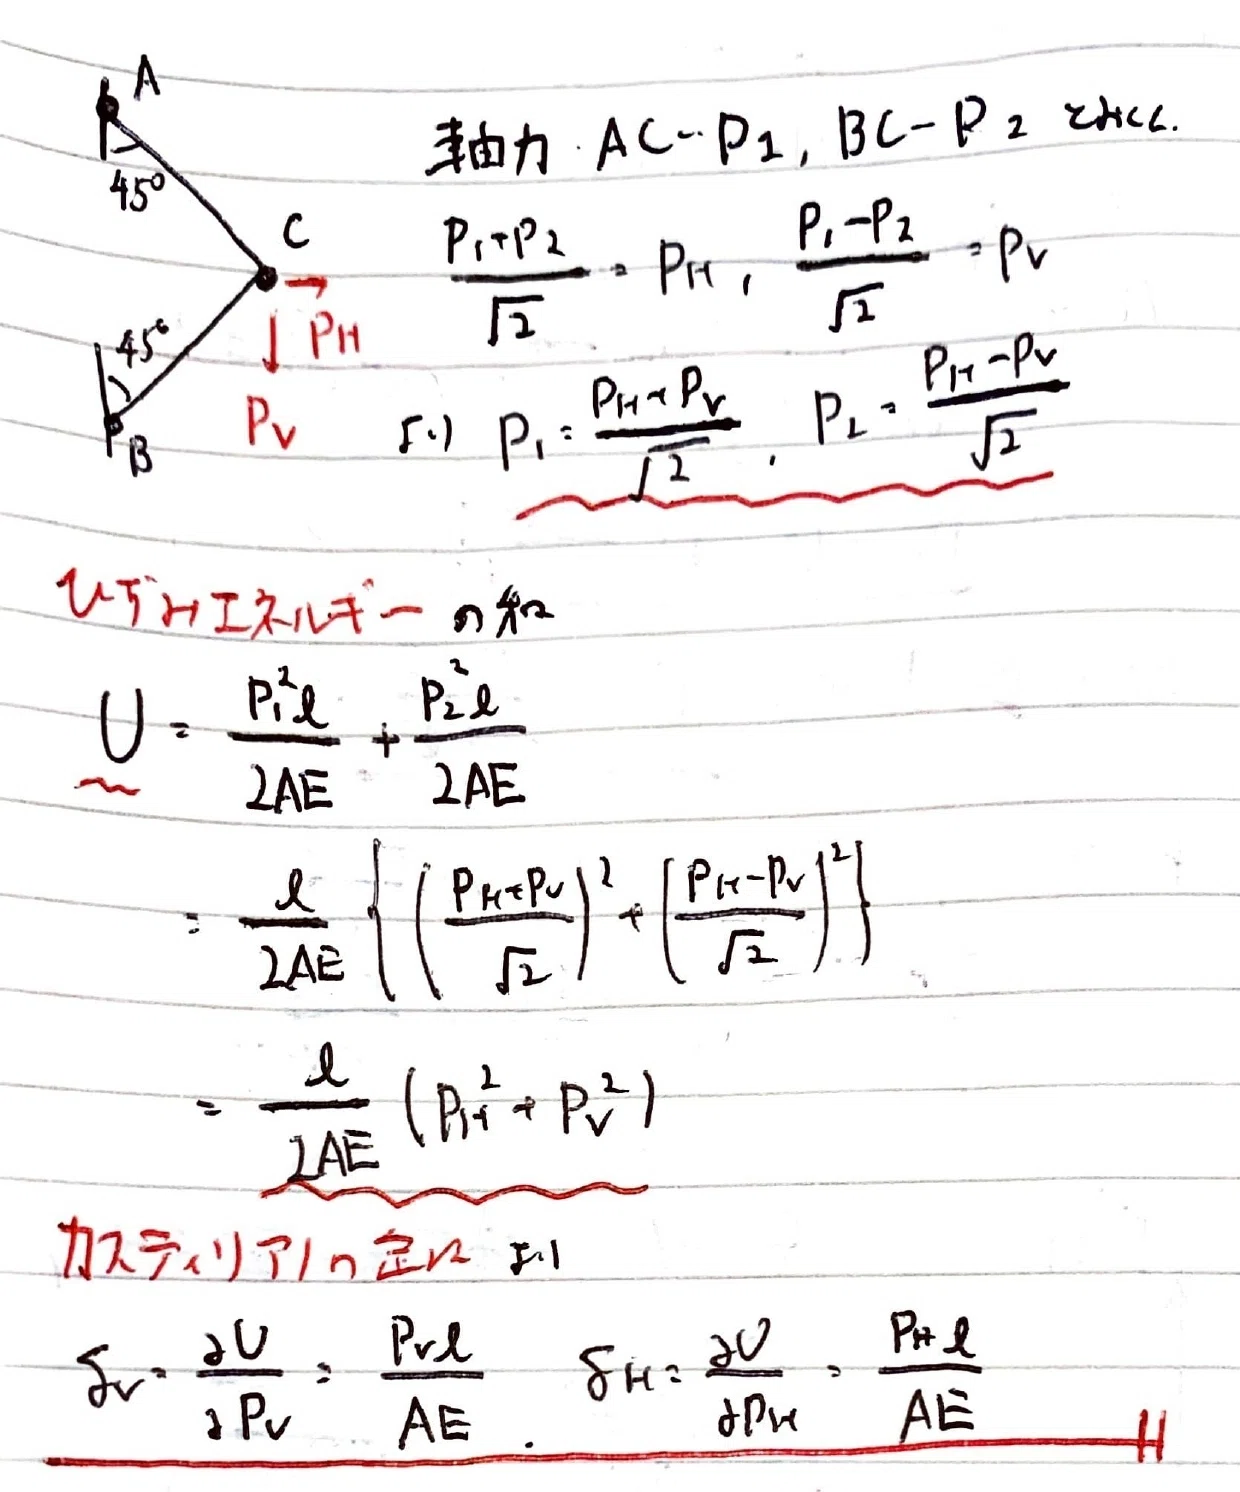 A
45°
C
P_H
P_V
45°
B
軸力 AC…P1, BC…P2 とおくと.
(P1+P2)/√2 = P_H, (P1-P2)/√2 = P_V
より P1 = (P_H+P_V)/√2, P2 = (P_H-P_V)/√2
ひずみエネルギーの和
U = P1²l/2AE + P2²l/2AE
= l/2AE {((P_H+P_V)/√2)² + ((P_H-P_V)/√2)²}
= l/2AE (P_H² + P_V²)
カスティリアノの定理より
δ_V = ∂U/∂P_V = P_V l/AE. δ_H = ∂U/∂P_H = P_H l/AE